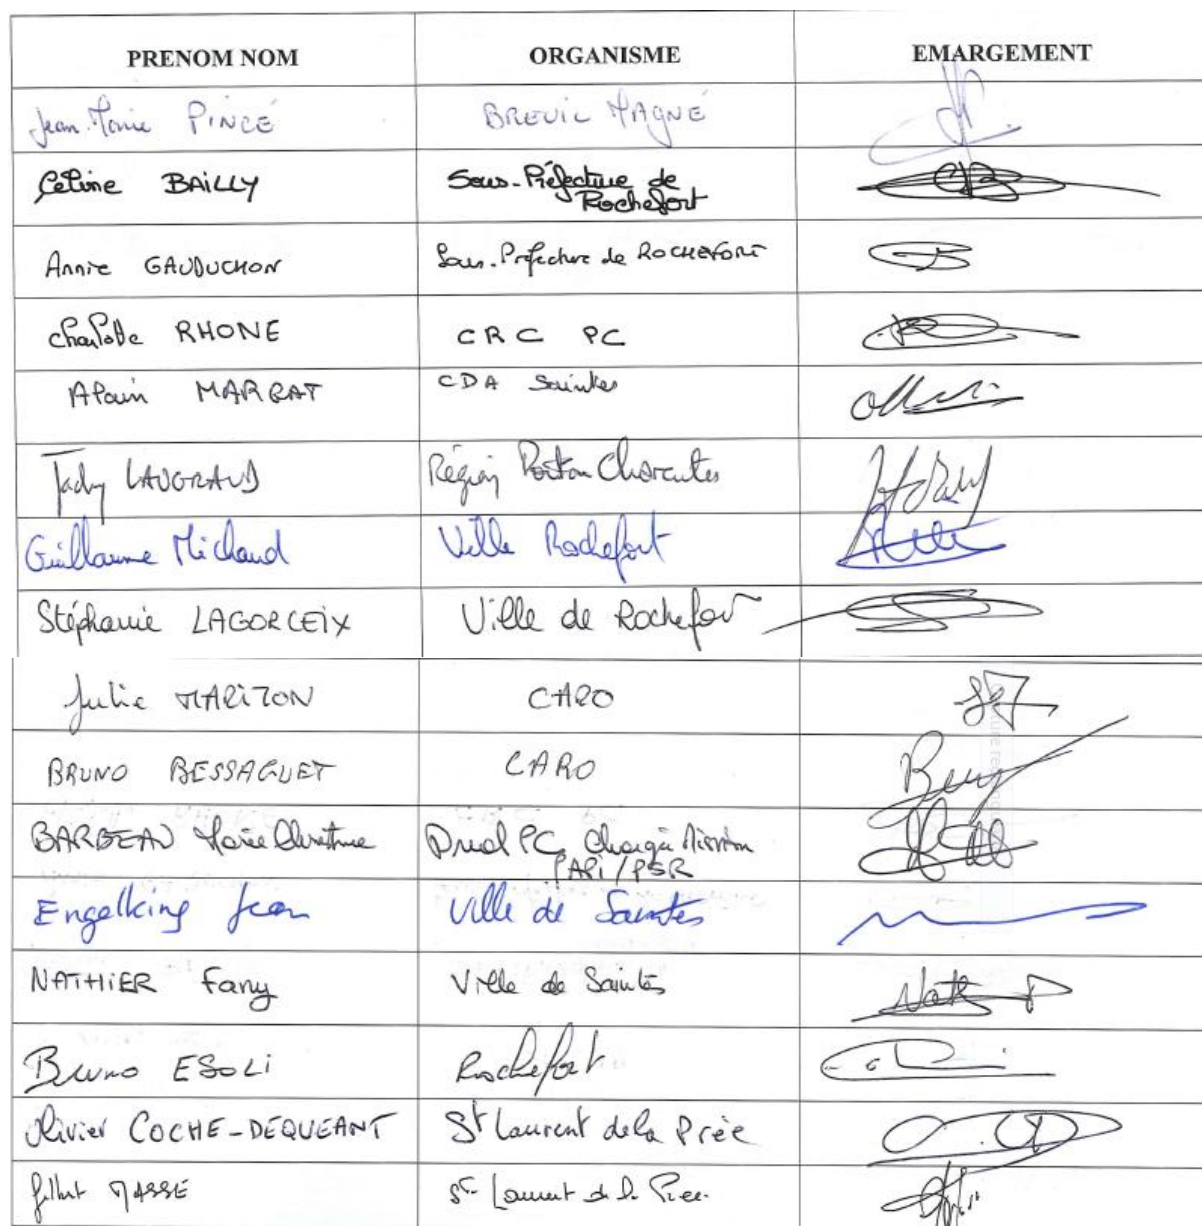 PRENOM NOM ORGANISME EMARGEMENT
Jean-Marie PINCÉ BREUIL MAGNÉ
Céline BAILLY Sous-Préfecture de
Rochefort
Annie GAUDUCHON Sous-Préfecture de ROCHEFORT
Charlotte RHONE CRC PC
Alain MARGAT CDA Saintes
LAUGRAUD Région Poitou Charentes
Guillaume Michaud Ville Rochefort
Stéphanie LAGORCEIX Ville de Rochefort
Julie MARITON CARO
BRUNO BESSAGUET CARO
BARBEAU Marie Christine Dreal PC Chargée Mission
PAPI/PSR
Engelking Jean Ville de Saintes
NATHIER Fany Ville de Saintes
Bruno ESOLI Rochefort
Olivier COCHE-DEQUEANT St Laurent de la Prée
MASSE St Laurent de la Prée